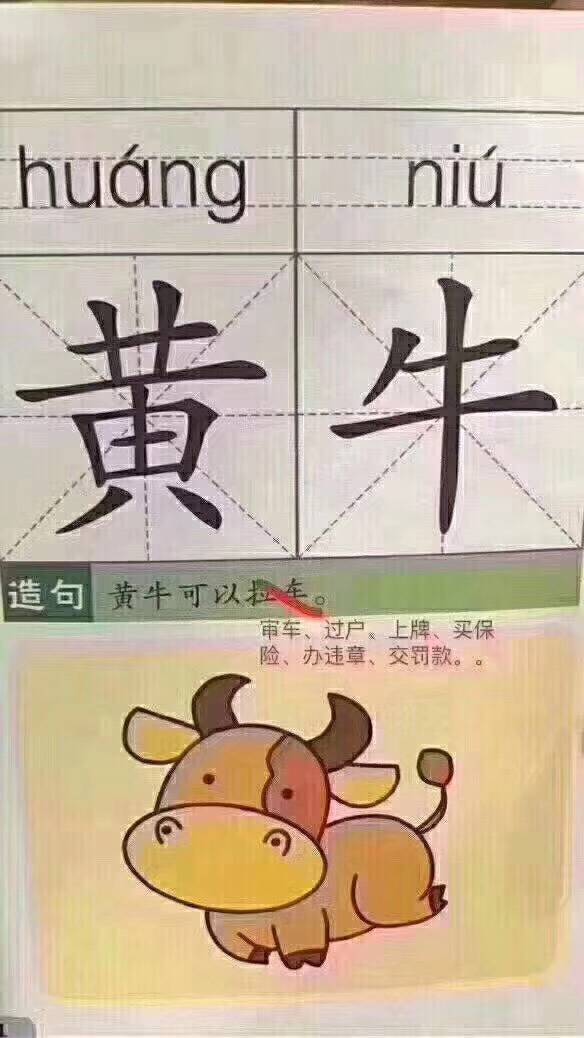 huáng niú
黄牛
造句 黄牛可以拉车。
审车、过户、上牌、买保
险、办违章、交罚款。。
1